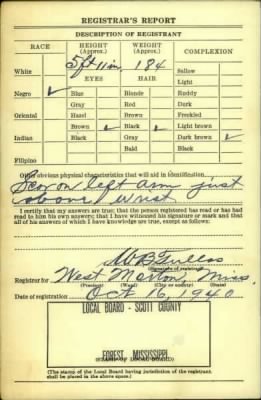 REGISTRAR'S REPORT
DESCRIPTION OF REGISTRANT
RACE HEIGHT (Approx.) WEIGHT (Approx.) COMPLEXION
5 ft 11 in. 184
White Sallow
EYES HAIR Light
Negro ✓ Blue Blonde Ruddy
Gray Red Dark
Oriental Hazel Brown Freckled
Brown ✓ Black ✓ Light brown
Indian Black Gray Dark brown ✓
Bald Black
Filipino
Other obvious physical characteristics that will aid in identification
Scar on left arm just
above wrist
I certify that my answers are true; that the person registered has read or has had
read to him his own answers; that I have witnessed his signature or mark and that
all of his answers of which I have knowledge are true, except as follows:
(Signature of registrar)
Registrar for West Morton, Miss.
(Precinct) (Ward) (City or county) (State)
Date of registration Oct 16, 1940
LOCAL BOARD - SCOTT COUNTY
FOREST, MISSISSIPPI
(STAMP OF LOCAL BOARD)
(The stamp of the Local Board having jurisdiction of the registrant
shall be placed in the above space.)